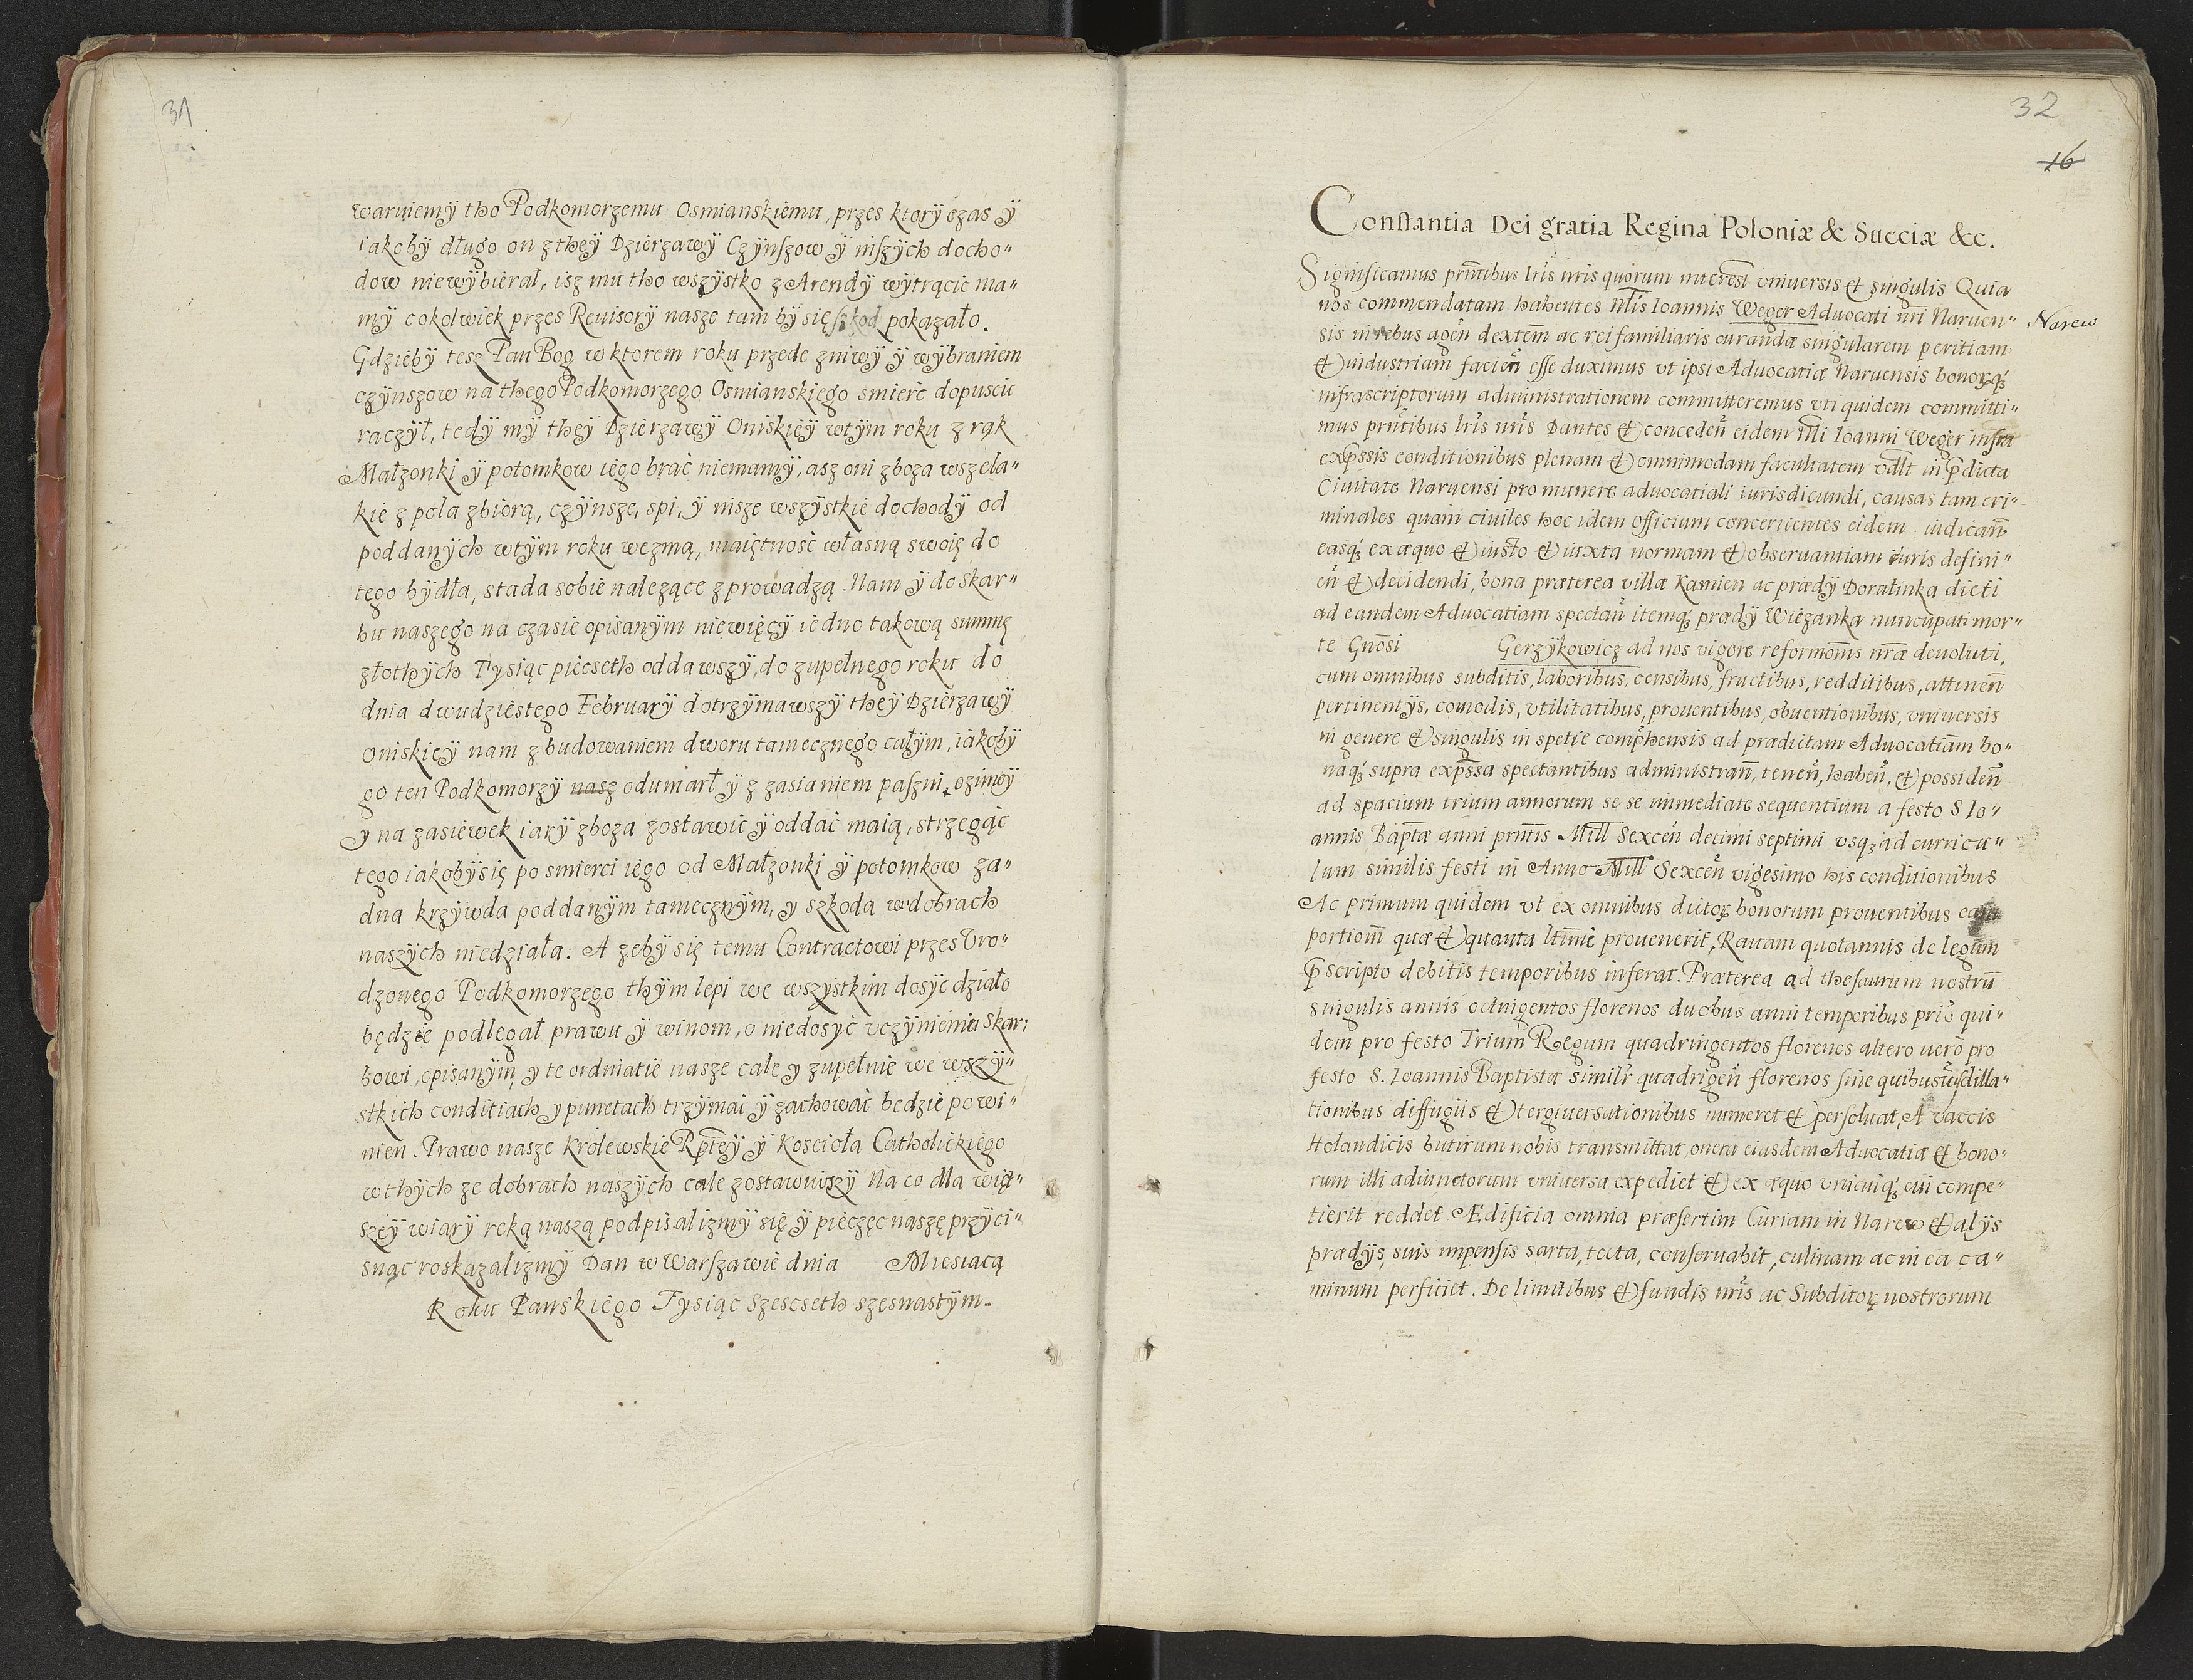 31
waruiemÿ tho Podkomorzemu Osmianskiemu, przes ktorÿ czas ÿ
iakobÿ długo on z theÿ Dzierzawÿ Czÿnszow ÿ inszÿch docho"
dow niewÿbierał, isz mu tho wszÿstko z Arendÿ wÿtrącic ma"
mÿ cokolwiek przes Reuisorÿ nasze tam bÿ się szkod pokazało.
Gdziebÿ tesz Pan Bog w ktorem roku przede zniwÿ ÿ wÿbraniem
czÿnszow na thego Podkomorzego Osmianskiego smierć dopuscić
raczÿł, tedÿ mÿ theÿ Dzierzawÿ Oniskieÿ wtÿm roku z rąk
Małzonki ÿ potomkow iego brać niemamÿ, asz oni zboza wszela"
kie z pola zbiorą, czÿnsze, spi, ÿ insze wszÿstkie dochodÿ od
poddanÿch wtÿm roku wezmą, maiętność własną swoię do
tego bÿdła, stada sobie nalezące zprowadzą. Nam ÿ do Skar"
bu naszego na czasie opisanÿm niewięcÿ iedno takową summę
złothÿch Tysiąc piecseth oddawszÿ, do zupełnego roku do
dnia dwudziestego Februarÿ dotrzÿmawszÿ theÿ Dzierzawÿ
Oniskieÿ nam z budowaniem dworu tamecznego całÿm, iakobÿ
go ten Podkomorzÿ nasz odumarł ÿ z zasianiem paszni ozimeÿ
y na zasiewek iarÿ zboza zostawić ÿ oddać maią, strzegąc
tego iakobÿ się po smierci iego od Małzonki ÿ potomkow za"
dna krzÿwda poddanÿm tamecznÿm, y szkoda w dobrach
naszÿch niedziała. A zebÿ się temu Contractowi przes Vro"
dzonego Podkomorzego thÿm lepi we wszystkim dosÿc działo
będzie podlegał prawu ÿ winom, o niedosÿć vczÿnieniu Skar:
bowi, opisanÿm, y te ordinatie nasze cale y zupełnie we wszÿ"
stkich conditiach y punctach trzÿmać ÿ zachować bedzie powi"
nien. Prawo nasze Krolewskie Rpteÿ ÿ Koscioła Catholickiego
wthÿch ze dobrach naszÿch cale zostawuiszÿ Na co dla więt"
szeÿ wiarÿ ręką naszą podpisalizmÿ się ÿ pieczęc naszę przÿci"
snąc roskazalizmÿ Dan w Warszawie dnia Miesiącą
Roku Panskiego Tysiąc Szescseth szesnastÿm.
32
16
Constantia Dei gratia Regina Poloniæ & Sueciæ &c.
Significamus prñtibus lris nris quorum interest vniuersis et singulis Quia
nos commendatam habentes Mtis Ioannis Weger Aduocati nri Naruen"
Narew
sis in rebus agen dextem ac rei familiaris curandæ singularem peritiam
et industriam facien esse duximus vt ipsi Aduocatiæ Naruensis bonorq́
infrascriptorum administrationem committeremus vti quidem committi"
mus prñtibus lris nris Dantes et conceden eidem Mli Ioanni Weger infra
expssis conditionibus plenam et omnimodam facultatem vdlt in pdicta
Ciuitate Naruensi pro munere aduocatiali iurisdicundi, causas tam cri"
minales quam ciuiles hoc idem officium concernentes eidem iudican
easq́ ex æquo et iusto et iuxta normam et obseruantiam iuris defini"
en et decidendi, bona præterea villæ Kamien ac prædÿ Doratinka dicti
ad eandem Aduocatiam spectan itemq́ prædÿ Wiezanka nuncupati mor"
te Gnosi Gerzÿkowicz ad nos vigore reformonis nræ deuoluti,
cum omnibus subditis, laboribus, censibus, fructibus, redditibus, attinen
pertinentÿs, comodis, vtilitatibus, prouentibus, obuentionibus, vniuersis
in genere et singulis in spetie comphensis ad prædictam Aduocatiam bo"
naq́ supra expssa spectantibus administran, tenen, haben, et possiden
ad spacium trium annorum se se immediate sequentium a festo S Io"
annis Baptæ anni prñtis Mill Sexcen decimi septimi vsq ad curricu"
lum similis festi in Anno Mill Sexcen vigesimo his conditionibus
Ac primum quidem vt ex omnibus dictor bonorum prouentibus eam
portiom quæ et quanta ltime prouenerit, Rauam quotannis de legum
pscripto debitis temporibus inferat. Præterea ad thesaurum nostru
singulis annis octingentos florenos duobus anni temporibus prio qui"
dem pro festo Trium Regum quadringentos florenos altero uero pro
festo S. Ioannis Baptistæ similr quadrigen florenos sine quibusuis dilla"
tionibus diffugiis et tergiuersationibus numeret et persoluat, A vaccis
Holandicis butirum nobis transmittat, onera eiusdem Aduocatiæ et bono"
rum illi adiunctorum vniuersa expediet et ex æquo vnicuiq́ cui compe"
tierit reddet Ædificia omnia præsertim Curiam in Narew et alÿs
prædÿs, suis impensis sarta, tecta, conseruabit, culinam ac in ea ca"
minum perficiet. De limitibus et fundis nris ac Subditor nostrorum